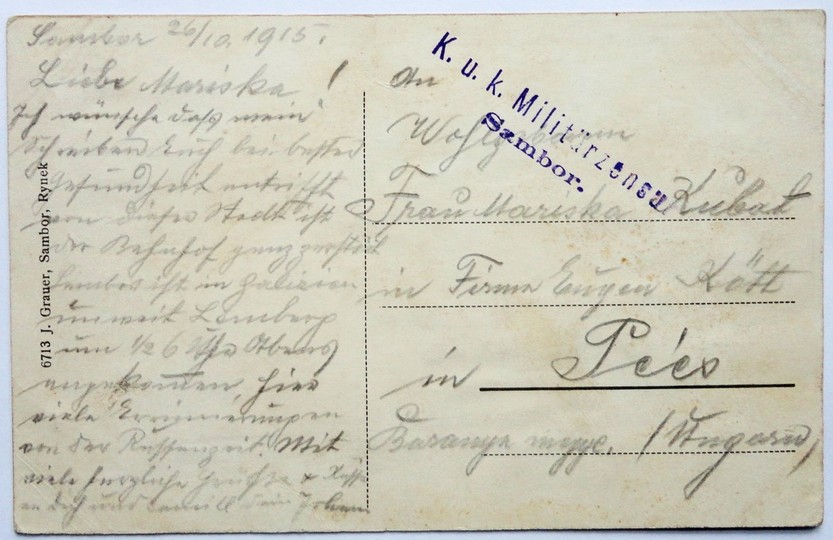 Sambor 26/10. 1915.
Liebe Mariska!
Ich wünsche daß mein
Schreiben Euch bei bester
Gesundheit antrifft
von dieser Stadt ist
der Bahnhof ganz zerstört
Sambor ist in Galizien
unweit Lemberg
um 1/2 6 Uhr Abens
angekommen hier
viele Errinnerungen
von der Russenzeit. Mit
viele herzliche Grüße & Küsse
an Dich und dein Johann
6713 J. Grauer, Sambor, Rynek
K. u. k. Militärzensur
Sambor.
An
Wohlgeboren
Frau Mariska Kubat
in Firma Eugen Kött
in Pécs
Baranya megye. (Ungarn)